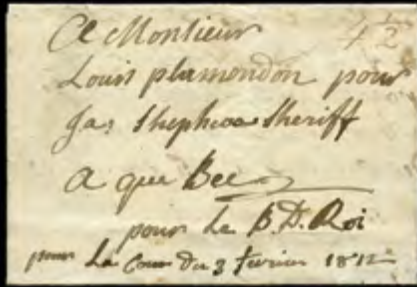 A Monsieur 4 1/2
Louis plamondon pour
Jas Shepherd Sheriff
a que Bec
pour Le B. D. Roi
pour La Cour Du 3 fevrier 1812